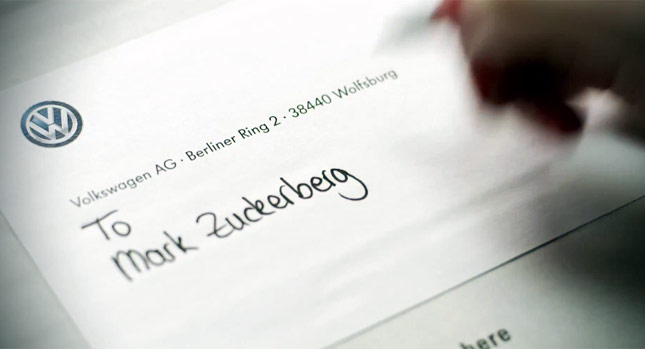 VW
Volkswagen AG · Berliner Ring 2 · 38440 Wolfsburg
To
Mark Zuckerberg
here